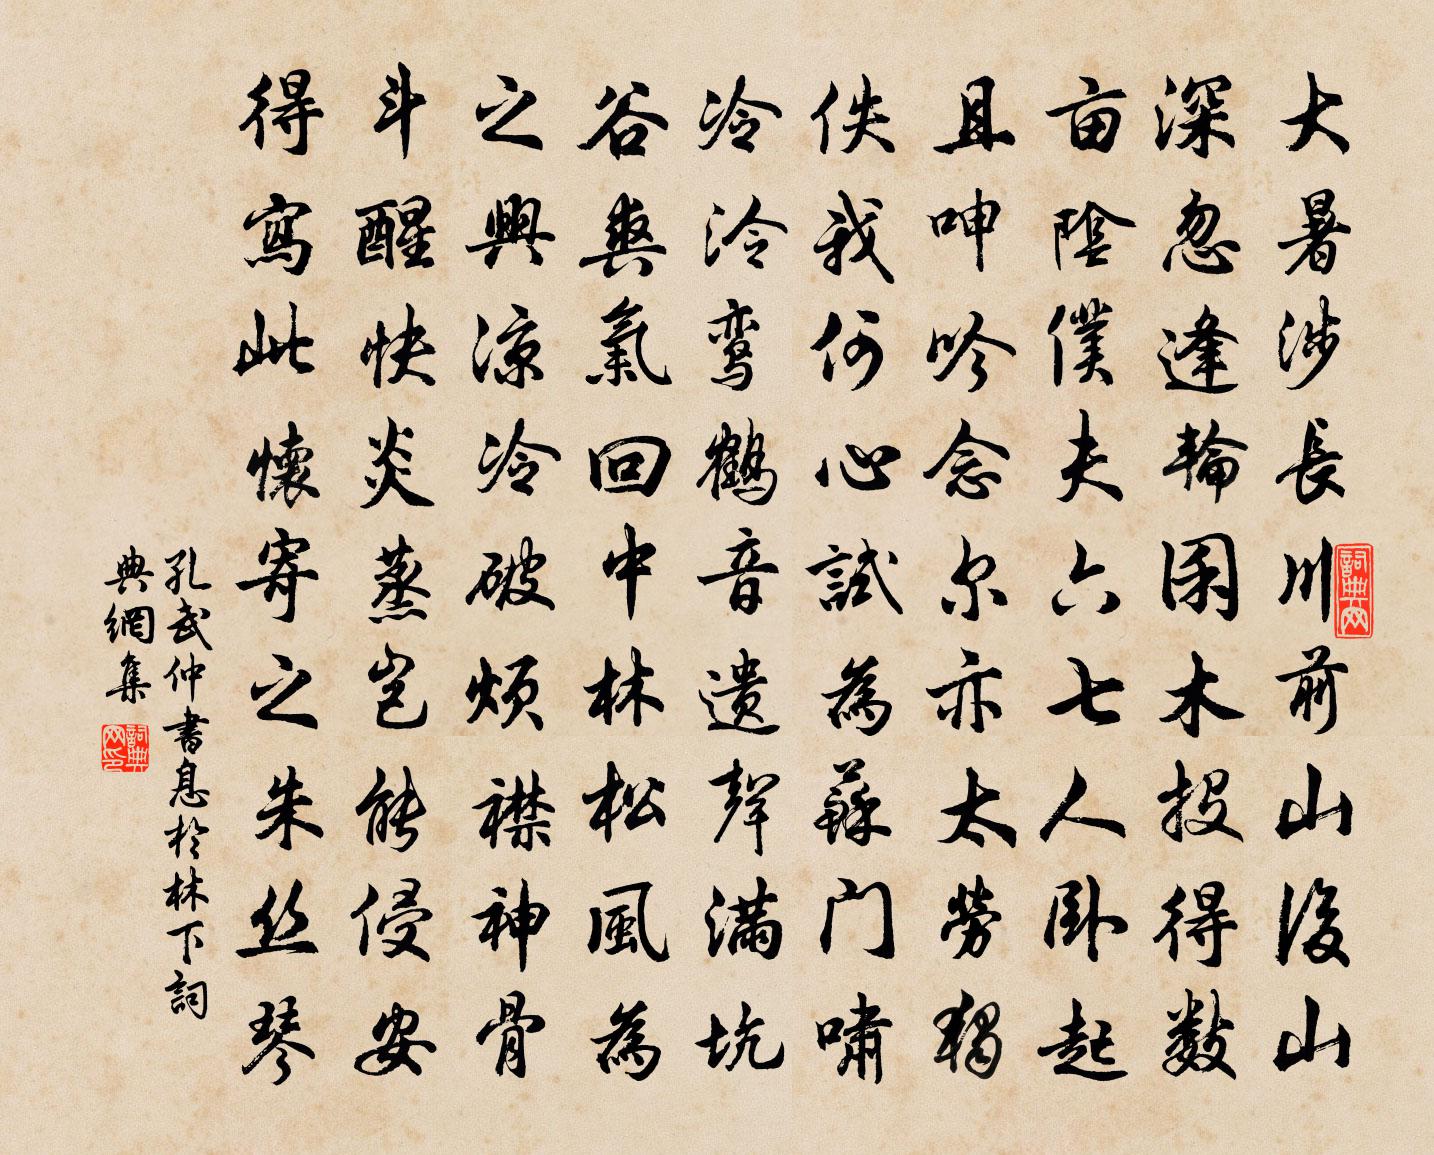 大暑涉長川前山後山
深忽逢輪囷木投得數
亩陰僕夫六七人卧起
且呻吟念尔亦太勞獨
佚我何心試為蘇门嘯
冷泠鸾鶴音遗聲满坑
谷爽氣回中林松風為
之興涼冷破烦襟神骨
斗醒快炎蒸岂能侵安
得寫此懷寄之朱丝琴
孔武仲書息於林下詞
典網集
詞典网
詞典网印